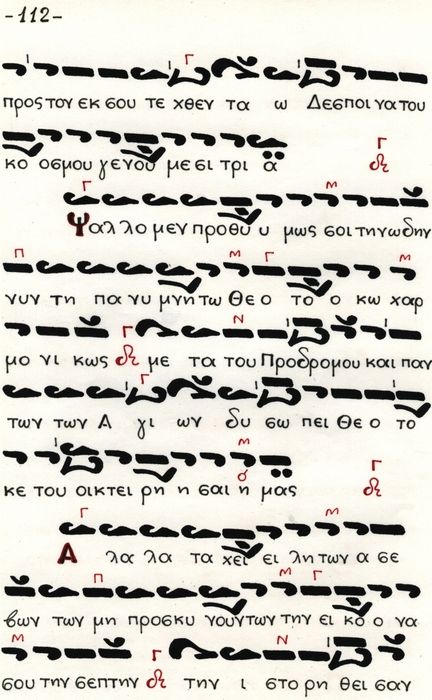 -112-
προς τον εκ σου τε χθεν τα ω Δεσποι να του
κο οσμου γενου με σι τρι α
Ψαλ λο μεν προθυ υ μως σοι την ωδην
νυν τη πα νυ μνη τω Θε ο το ο κω χαρ
μο νι κως με τα του Προδρομου και παν
των των Α γι ων δυ σω πει Θε ο το
κε του οικτει ρη η σαι η μας
Α λα λα τα χει ει λη των α σε
βων των μη προσκυ νουντων την ει κο ο να
σου την σεπτην την ι στο ρη θει σαν